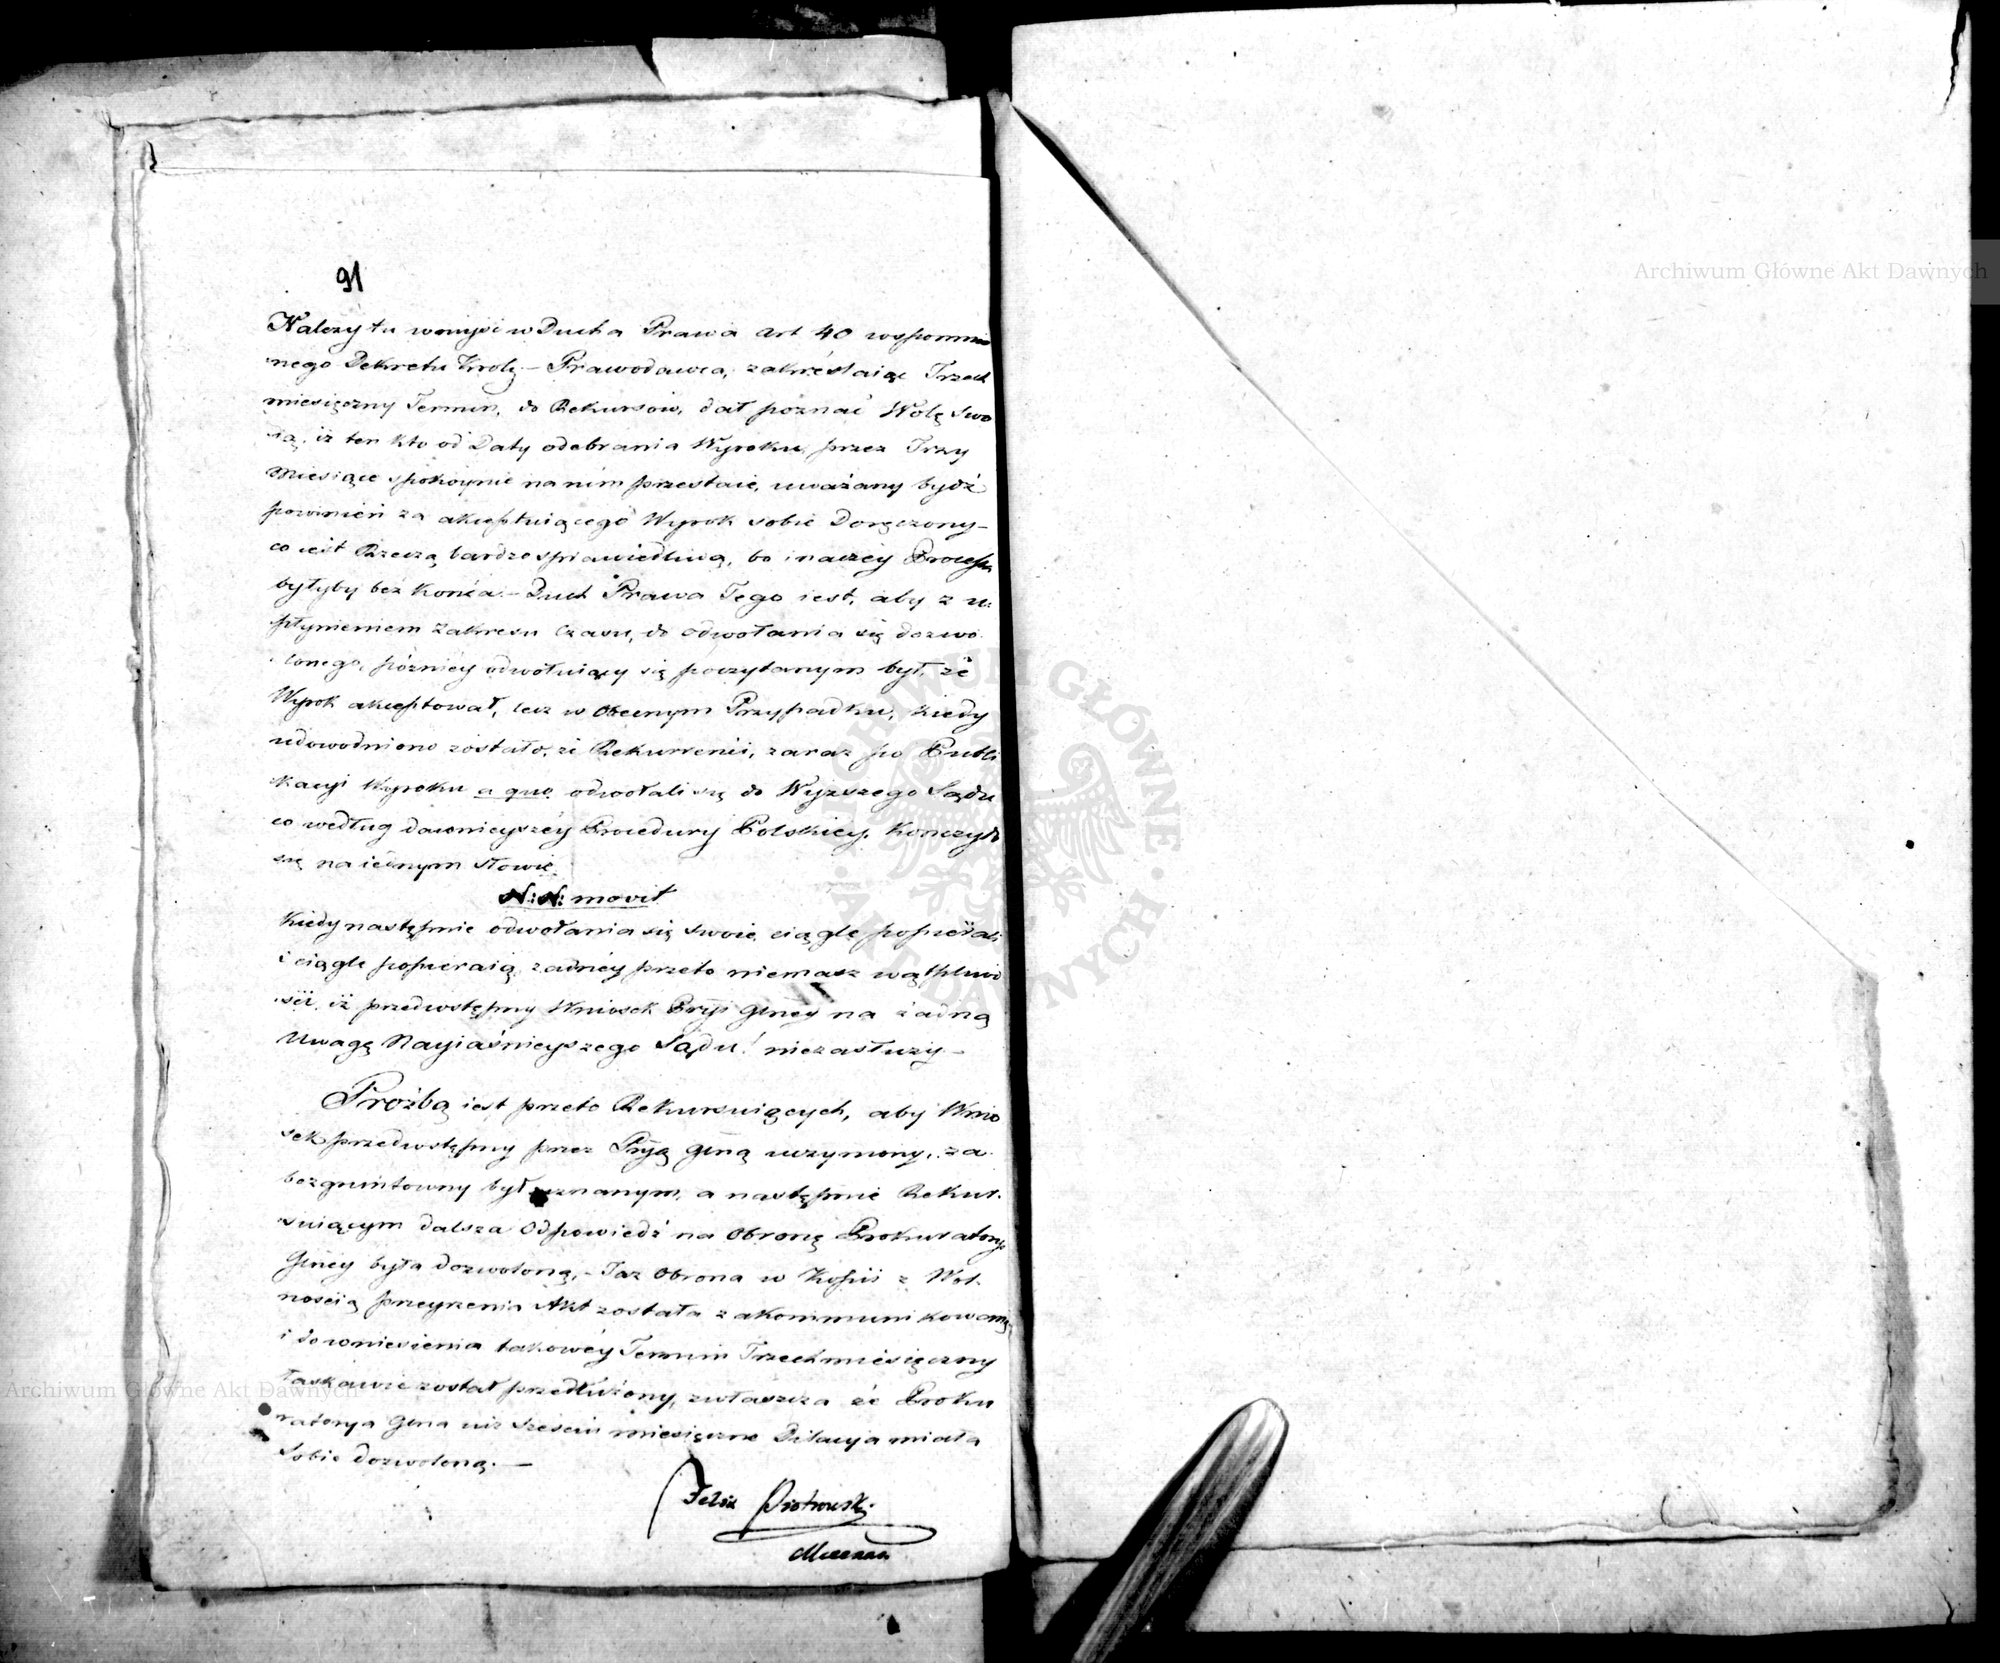 91
Należy tu wniyść w Ducha Prawa art 40 wspomnio
nego Dekretu Krolg – Prawodawca, zakréslaiąc Trzech
miesięczny Termin, do Rekursow, dał poznać Wolę Swo
ią, iż ten kto od Daty odebrania Wyroku, przez Trzy
Miesiące spokoynie na nim przestaie, uważany bydź
powinień za akceptuiącego Wyrok sobie Doręczony –
co iest Rzeczą bardzo sprawiedliwą, bo inaczéy Processa
byłyby bez Końca. – Duch Prawa Tego iest, aby z u:
płynieniem zakresu Czasu, do odwołania się dozwo
lonego, późniéy odwołuiący się poczytanym był, że
Wyrok akceptował, lecz w Obecnym Przypadku, kiedy
udowodniono zostało, że Rekurrenci, zaraz po Publi
kacyi Wyroku a quo odwołali się do Wyższego Sądu
co według dawnieyszéy Procedury Polskiey, Konczyło
się na iednym słowie
N: N: movit
Kiedy następnie odwołania się swoie, ciągle popierali
i ciągle popieraią, żadnéy przeto niemasz wątpliwo
sci, iż przedwstępny Wniosek Pryi Gnéy na żadną
Uwagę Nayiaśnieyszego Sądu! niezasłuży –
Prożbą iest przeto Rekursuiących, aby Wnio
sek przedwstępny przez Pryą Gną uczymony, za
bezgruntowny był uznanym, a następnie Rekur:
suiącym dalsza Odpowiedź na Obronę Prokuratoryi
Gnéy była dozwoloną, – Taż Obrona w Kopii z Wol
nością przeyrzenia Akt została zakommunikowaną
i do wniesienia takowéy Termin Trzechmiesięczny
łaskawie został przedłużony, zwłaszcza że Proku
ratorya Gena iuż sześciu miesięczne Dilacya miała
Sobie dozwoloną. –
Felix Piotrowski
Mecenas
Archiwum Główne Akt Dawnych
Archiwum Główne Akt Dawnych
ARCHIWUM GŁÓWNE AKT DAWNYCH